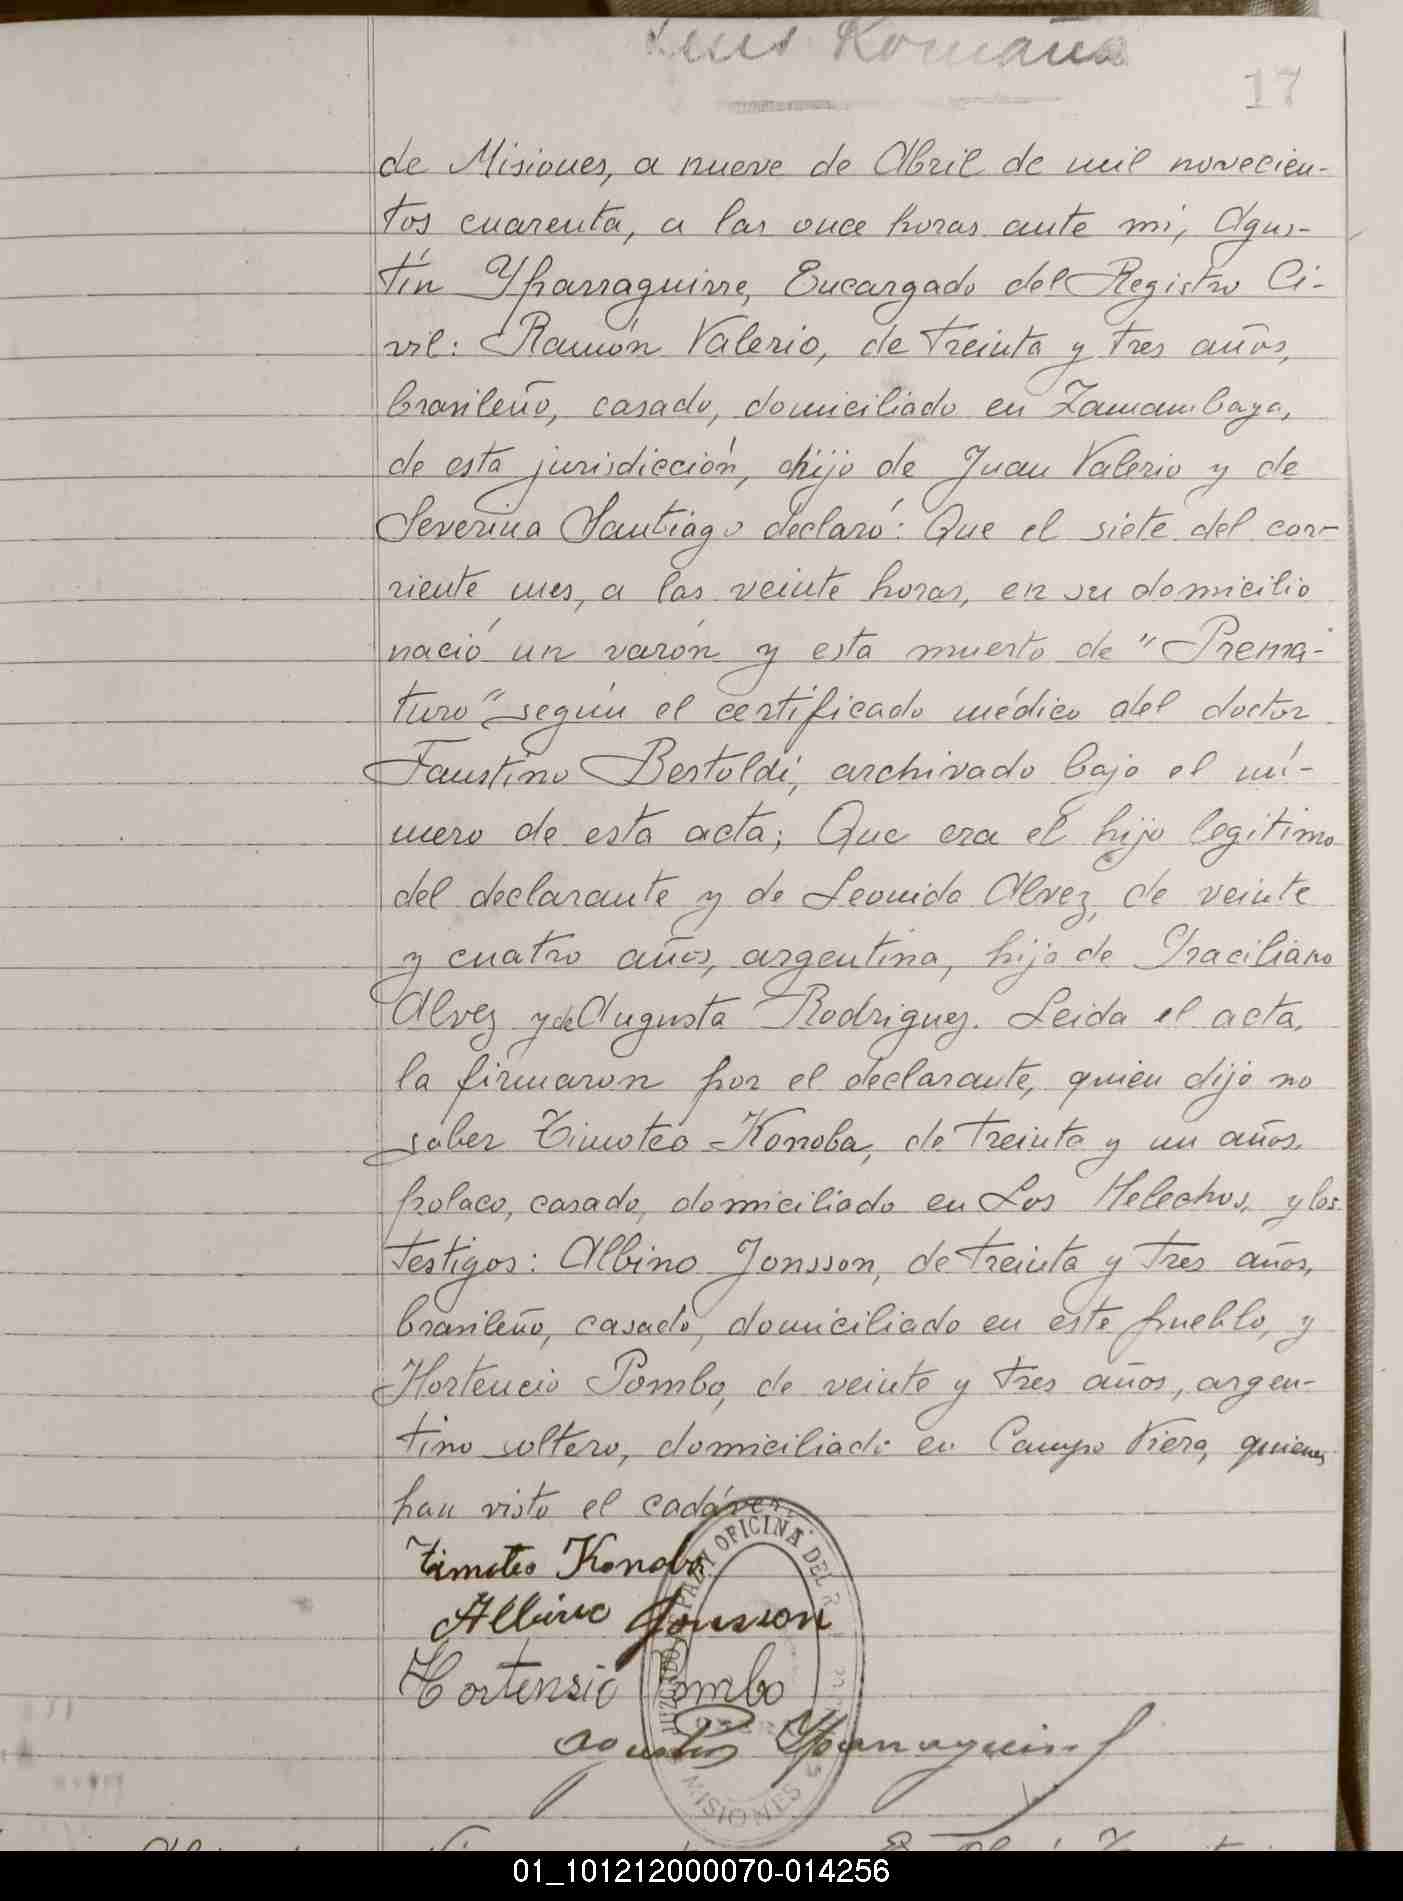 Luis Romaña
17
de Misiones, a nueve de Abril de mil novecien-
tos cuarenta, a las once horas ante mi, Agus-
tín Yparraguirre, Encargado del Registro Ci-
vil: Ramón Valerio, de treinta y tres años,
brasileño, casado, domiciliado en Zamambaya,
de esta jurisdicción, hijo de Juan Valerio y de
Severina Santiago declaró: Que el siete del cor-
riente mes, a las veinte horas, en su domicilio
nació un varón y esta muerto de "Prema-
turo" según el certificado médico del doctor
Faustino Bertoldi, archivado bajo el nú-
mero de esta acta; Que era el hijo legitimo
del declarante y de Leonida Alvez, de veinte
y cuatro años, argentina, hija de Graciliano
Alvez y de Augusta Rodriguez. Leida el acta,
la firmaron por el declarante, quien dijo no
saber Timoteo Konoba, de treinta y un años,
polaco, casado, domiciliado en Los Helechos, y los
testigos: Albino Jonsson, de treinta y tres años,
brasileño, casado, domiciliado en este pueblo, y
Hortencio Pombo, de veinte y tres años, argen-
tino soltero, domiciliado en Campo Viera, quienes
han visto el cadáver.
timoteo Konoba
Albino Jonsson
Hortensio Pombo
Agustin Yparraguirre
OFICINA DEL
MISIONES
01_101212000070-014256